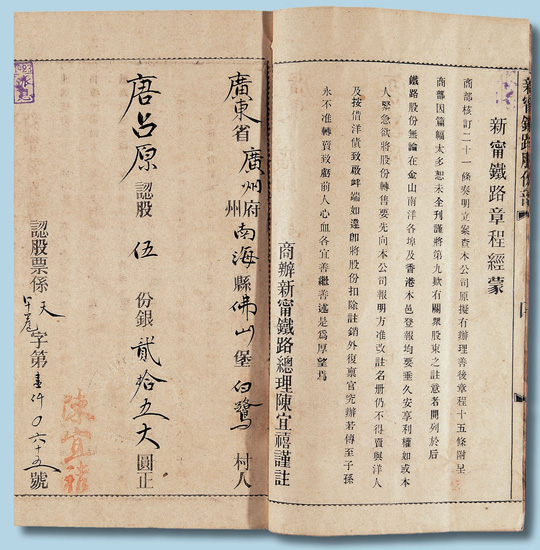 新甯鐵路股份部
新甯鐵路章程經蒙
商部核訂二十一條奏明立案查本公司原擬有辦理善後章程十五條附呈
商部因篇幅太多恕未全刊謹將第九欵有關衆股東之註意者開列於后
鐵路股份無論在金山南洋各埠及香港本邑登報均要垂久安享利權如或本
人緊急欲將股份轉售要先向本公司報明方准改註名册仍不得賣與洋人
及按借洋債致啟衅端如違卽將股份扣除註銷外復禀官究辦若傳至子孫
永不准轉賣致虧前人心血各宜善繼善述是爲厚望焉
商辦新甯鐵路總理陳宜禧謹註
廣東省廣州府州南海縣佛山堡白鷺村人
唐吕原認股伍份銀貳拾五大圓正
認股票係天字第壹仟0六十五號
陳宜禧